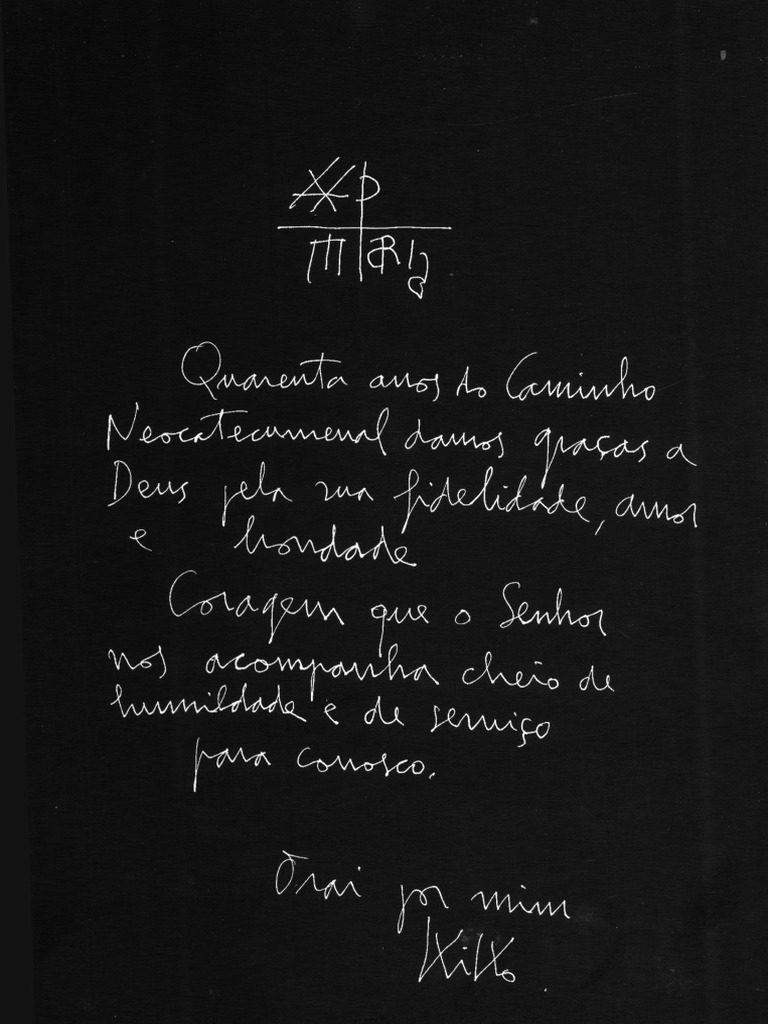 XP
MARIA
Quarenta anos do Caminho
Neocatecumenal damos graças a
Deus pela sua fidelidade, amor
e bondade
Coragem que o Senhor
nos acompanha cheio de
humildade e de serviço
para conosco.
Orai por mim
Kiko.